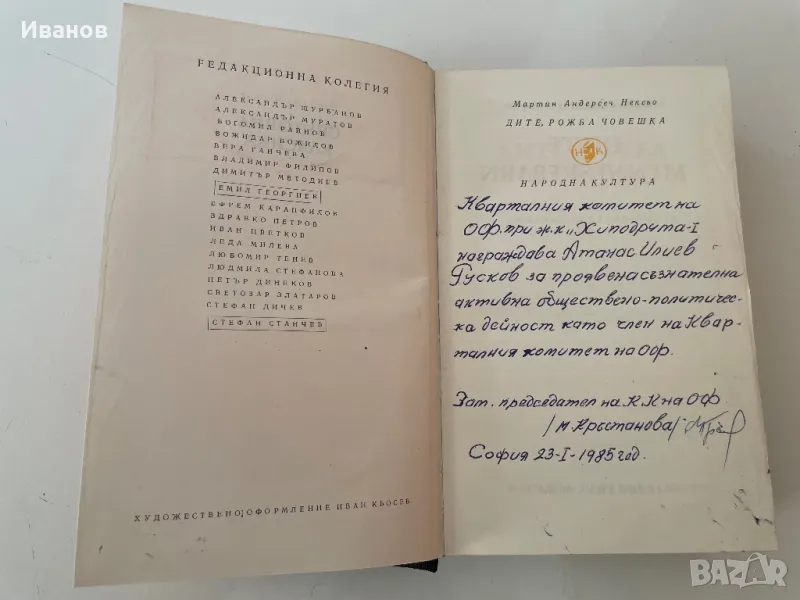 Иванов
РЕДАКЦИОННА КОЛЕГИЯ
АЛЕКСАНДЪР ШУРБАНОВ
АЛЕКСАНДЪР МУРАТОВ
БОГОМИЛ РАЙНОВ
БОЖИДАР БОЖИЛОВ
ВЕРА ГАНЧЕВА
ВЛАДИМИР ФИЛИПОВ
ДИМИТЪР МЕТОДИЕВ
ЕМИЛ ГЕОРГИЕВ
ЕФРЕМ КАРАНФИЛОВ
ЗДРАВКО ПЕТРОВ
ИВАН ЦВЕТКОВ
ЛЕДА МИЛЕВА
ЛЮБОМИР ТЕНЕВ
ЛЮДМИЛА СТЕФАНОВА
ПЕТЪР ДИНЕКОВ
СВЕТОЗАР ЗЛАТАРОВ
СТЕФАН ДИЧЕВ
СТЕФАН СТАНЧЕВ
ХУДОЖЕСТВЕНО ОФОРМЛЕНИЕ ИВАН КЬОСЕВ
Мартин Андерсен Нексьо
ДИТЕ, РОЖБА ЧОВЕШКА
НК
НАРОДНА КУЛТУРА
Кварталния комитет на
ОФ при ж.к „Хиподрума-I
награждава Атанас Илиев
Гусков за проявена съзнателна
активна обществено-политичес-
ка дейност като член на Квар-
талния комитет на ОФ.
Зам. председател на КК на ОФ
/М. Кръстанова/
София 23-I-1985 год.
BAZAR